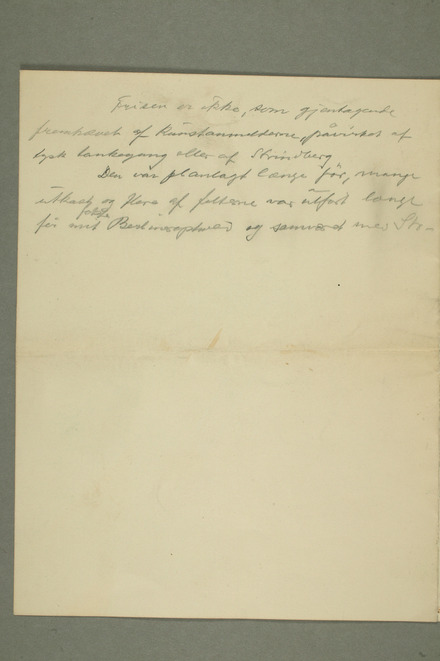 Frisen er ikke, som gjentagende
fremhævet af Kunstanmelderne, påvirket af
tysk tankegang eller af Strindberg
Den var planlagt længe før, mange
utkast og flere af felterne var utført længe
før mit Berlineropholed og samværet med Str–